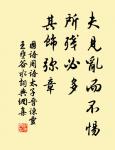 夫見亂而不惕
所殘必多
其飾彌章
國語周語太子晉諫靈
王壅谷水詞典網集